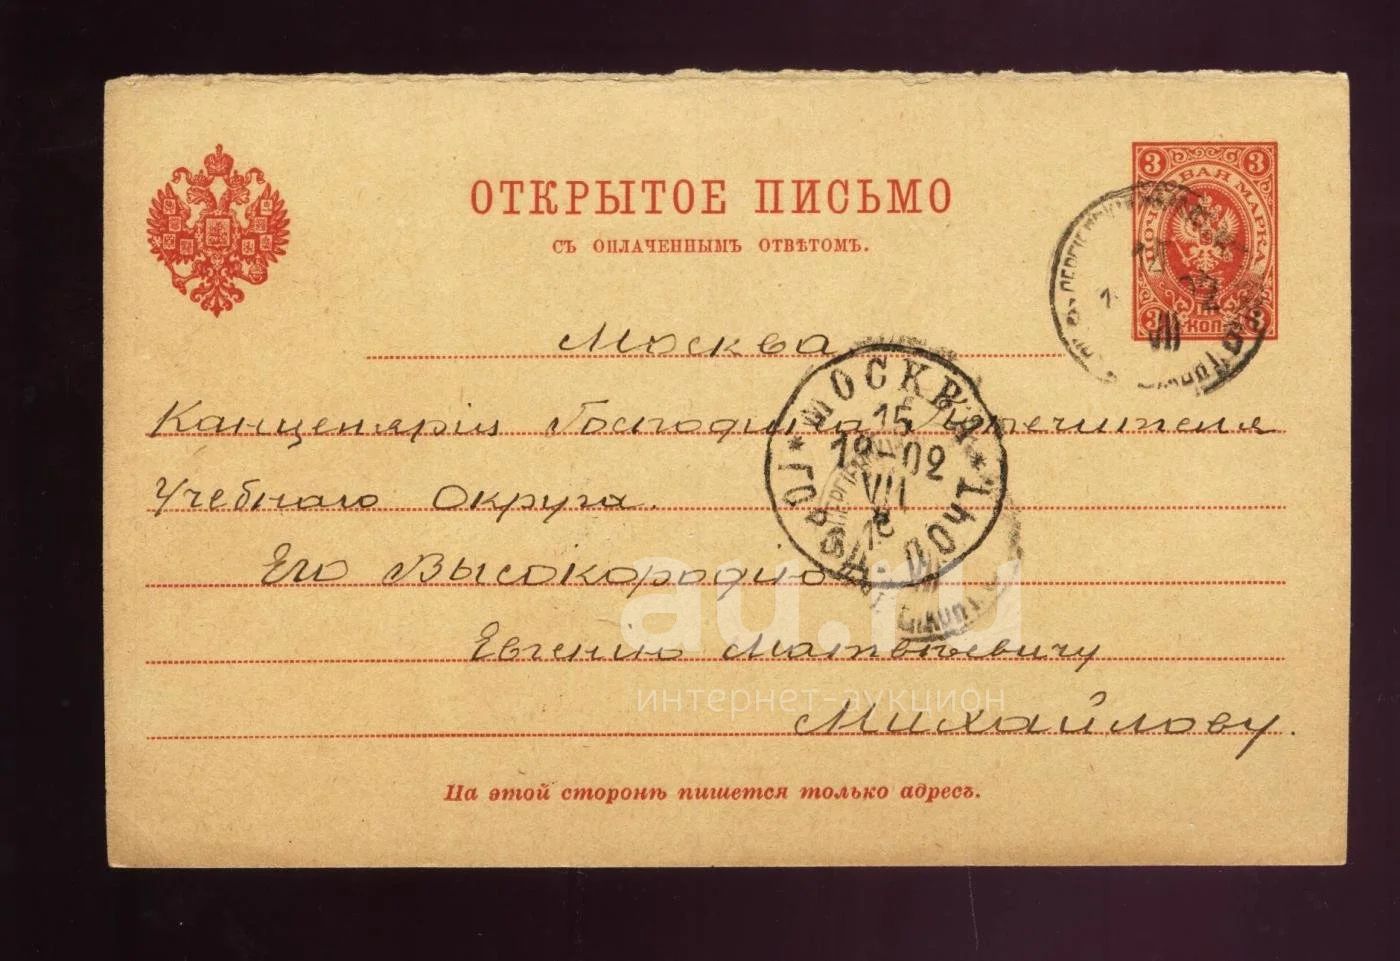 ОТКРЫТОЕ ПИСЬМО
СЪ ОПЛАЧЕННЫМЪ ОТВѢТОМЪ.
3 3
ПОЧТОВАЯ МАРКА
3 КОП. 3
VII
Москва
МОСКВА
15
1902
VII
ГОР. ПОЧТ.
Канцелярія Господина Попечителя
Учебнаго Округа.
Его Высокородію
Евгенію Матвѣевичу
Михайлову.
На этой сторонѣ пишется только адресъ.
au.ru
интернет-аукцион